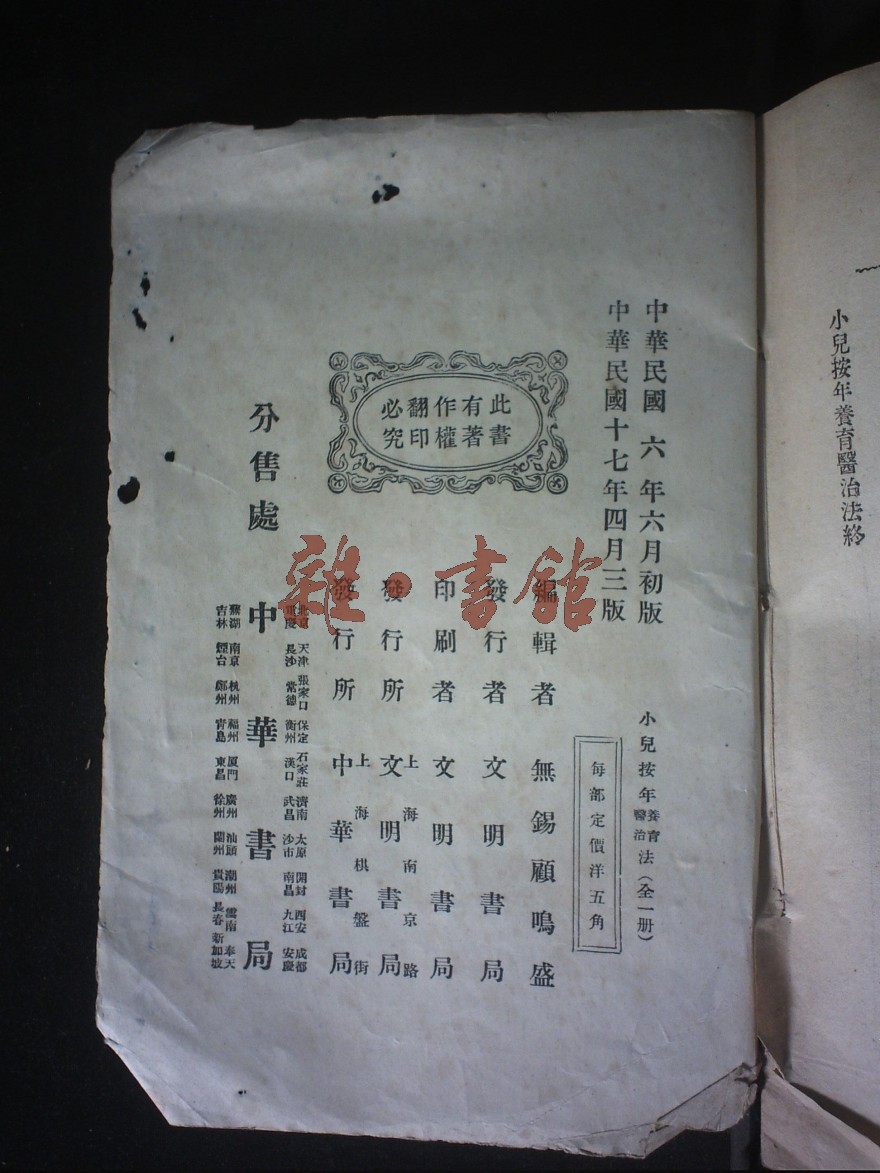 小兒按年養育醫治法終
中華民國六年六月初版
中華民國十七年四月三版
小兒按年養育醫治法(全一册)
每部定價洋五角
此書有著作權翻印必究
編輯者 無錫顧鳴盛
發行者 文明書局
印刷者 文明書局
上海南京路
發行所 文明書局
上海棋盤街
發行所 中華書局
分售處
北京 天津 張家口 保定 石家莊 濟南 太原 開封 西安 成都
重慶 長沙 常德 衡州 漢口 武昌 沙市 南昌 九江 安慶
中華書局
蕪湖 南京 杭州 福州 厦門 廣州 汕頭 潮州 雲南 奉天
吉林 煙台 鄭州 青島 東昌 徐州 蘭州 貴陽 長春 新加坡
雜·書館